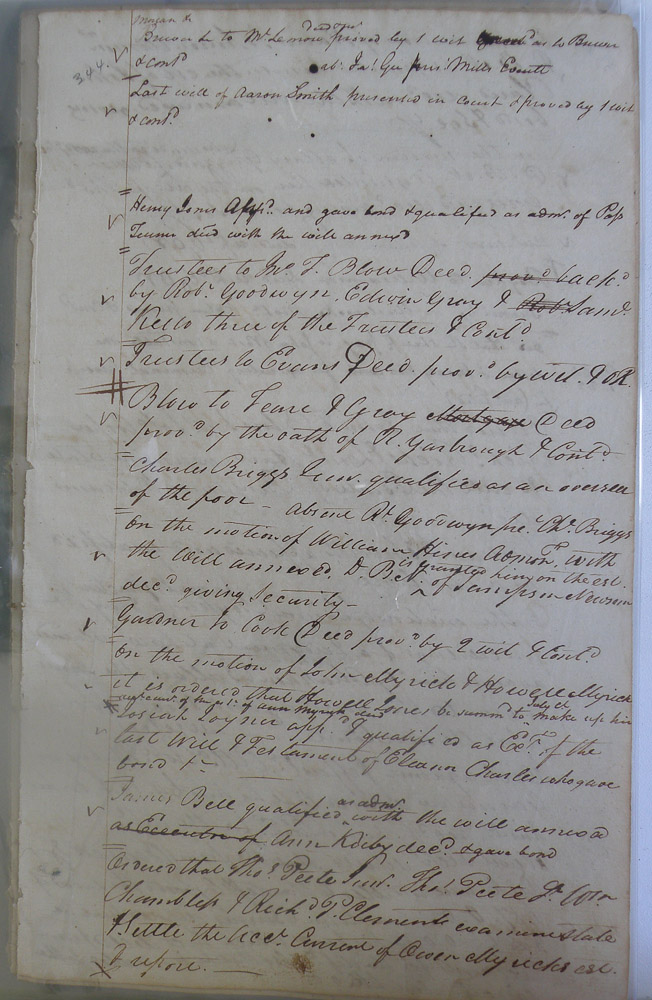 Morgan &
to Mr Lemore proved by 1 wit as to Brown
344.
& contd
ab. Jas. Gee pres. Mills Everitt
Last will of Aaron Smith presented in court & proved by 1 wit
& contd.
Henry Jones Appd. and gave bond & qualified as admr. of
Turner decd with the will annexed
Trustees to Jno. T. Blow Deed. provd. back.d
by Robt. Goodwyn, Edwin Gray & Robt. Saml.
Kello three of the Trustees & Contd.
Trustees to Evans Deed. prov.d by wit. & OR.
Blow to & Gray Mortgage Deed
provd. by the oath of Yarbrough & Contd.
Charles Briggs Junr. qualified as an overseer
of the poor — absent Rt. Goodwyn pre. Chs. Briggs
On the motion of William Hines Admon. with
the Will annexed. D. B. N. is granted him on the est.
decd. giving Security — ^ of Sampson Newsum
Gardner to Cook Deed provd. by 2 wit & Contd.
On the motion of John Myrick & Howell Myrick
it is ordered that Howell Jones be summd. to July Ct make up his
of the est. of Ann Myrick decd
Josiah Joyner appd. & qualified as Exr. of the
last Will & Testament of Eleanor Charles who gave
bond &c —
James Bell qualified as admr. with the will annexed
as Executor of Ann Kirby decd. & gave bond
Ordered that Thos. Peete Junr. Thos. Peete Wm
Chambless & Richd. P. Clements examine state
& settle the Acct. Current of Owen Myricks est.
& report. —